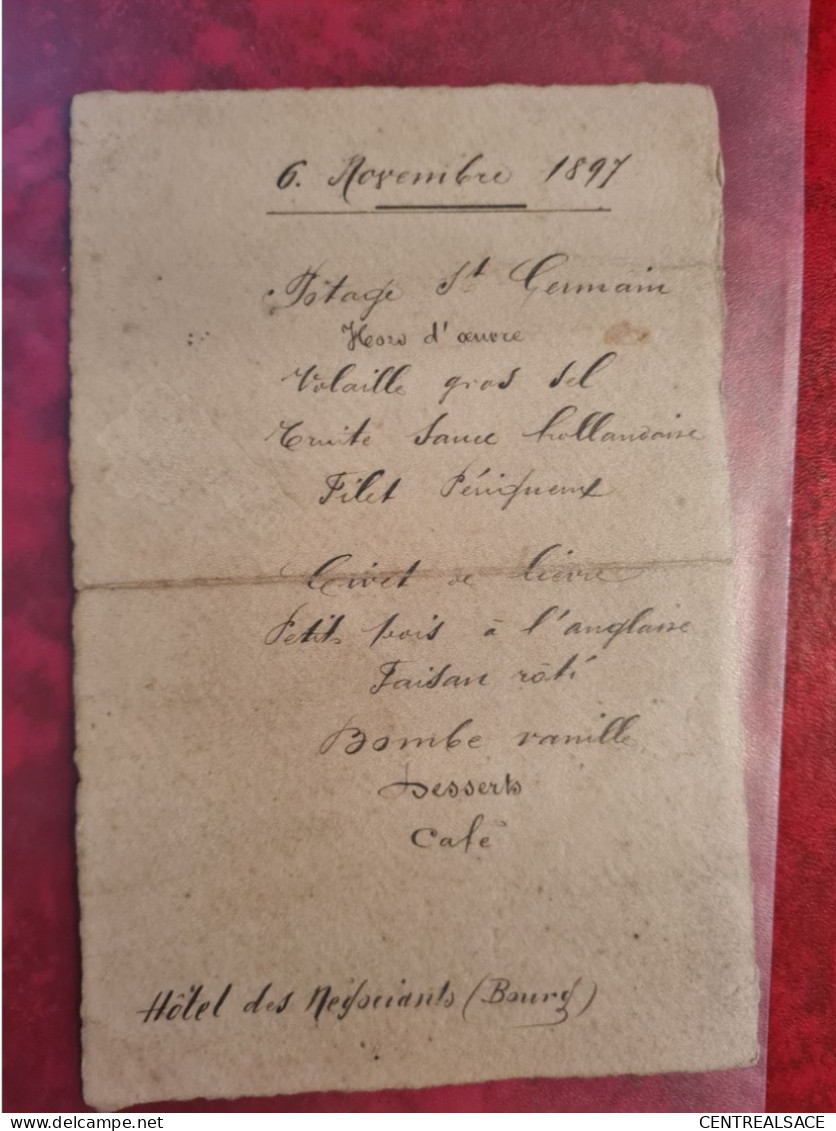 6. Novembre 1897
Potage St Germain
Hors d'œuvre
Volaille gros sel
Truite Sauce hollandaise
Filet Périgueux
Civet de lièvre
Petits pois à l'anglaise
Faisan rôti
Bombe vanille
Desserts
Café
Hôtel des Négociants (Bourg)
CENTREALSACE